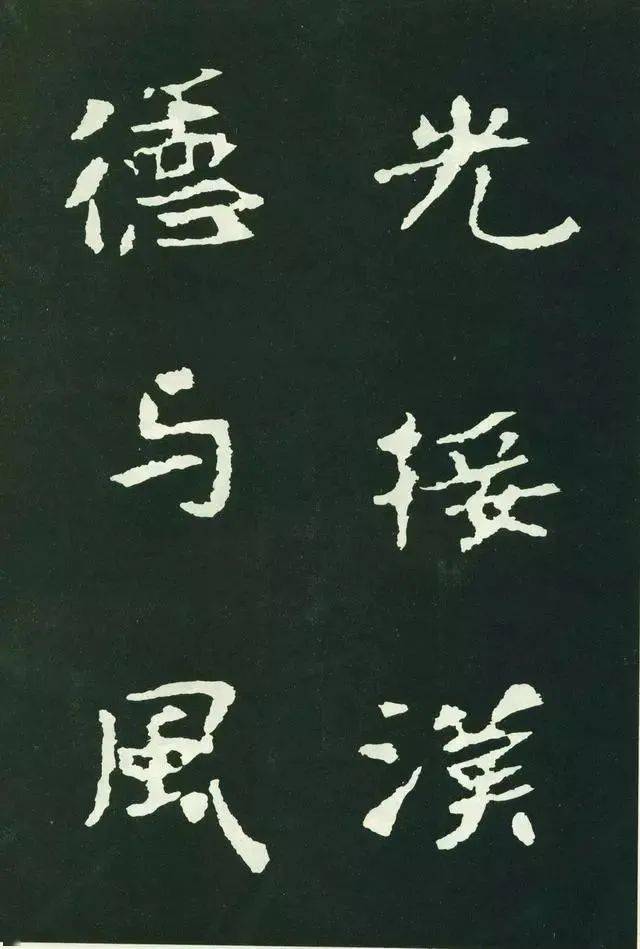 光接漢
德与風